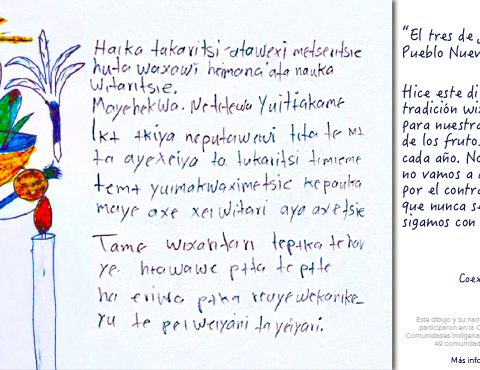 Haika takaritsi atawexi metseritsie
huta waxawi heimana ata nauka
witaritsie.
Mayehekwa. Netetewa Yuitiakame
Iki tkiya neputawewi tita te mi
ta ayexeiya ta tukaritsi timieme
temi yuimakwaximetsie kepauka
maye axe xei witari aya axetsie
Tame wixaritari tepika te hay
ye. hiawawe pita te pite
ha eriwa pika reuyewekanike
ru te pei weiyani ta yeiyari.
"El tres de
Pueblo Nuev
Hice este di
tradición wix
para nuestra
de los frutos
cada año. No
no vamos a
por el contra
que nunca s
sigamos con
Coex
Este dibujo y su narr
participaron en la C
Comunidades Indígena
49 comunidad
Más info